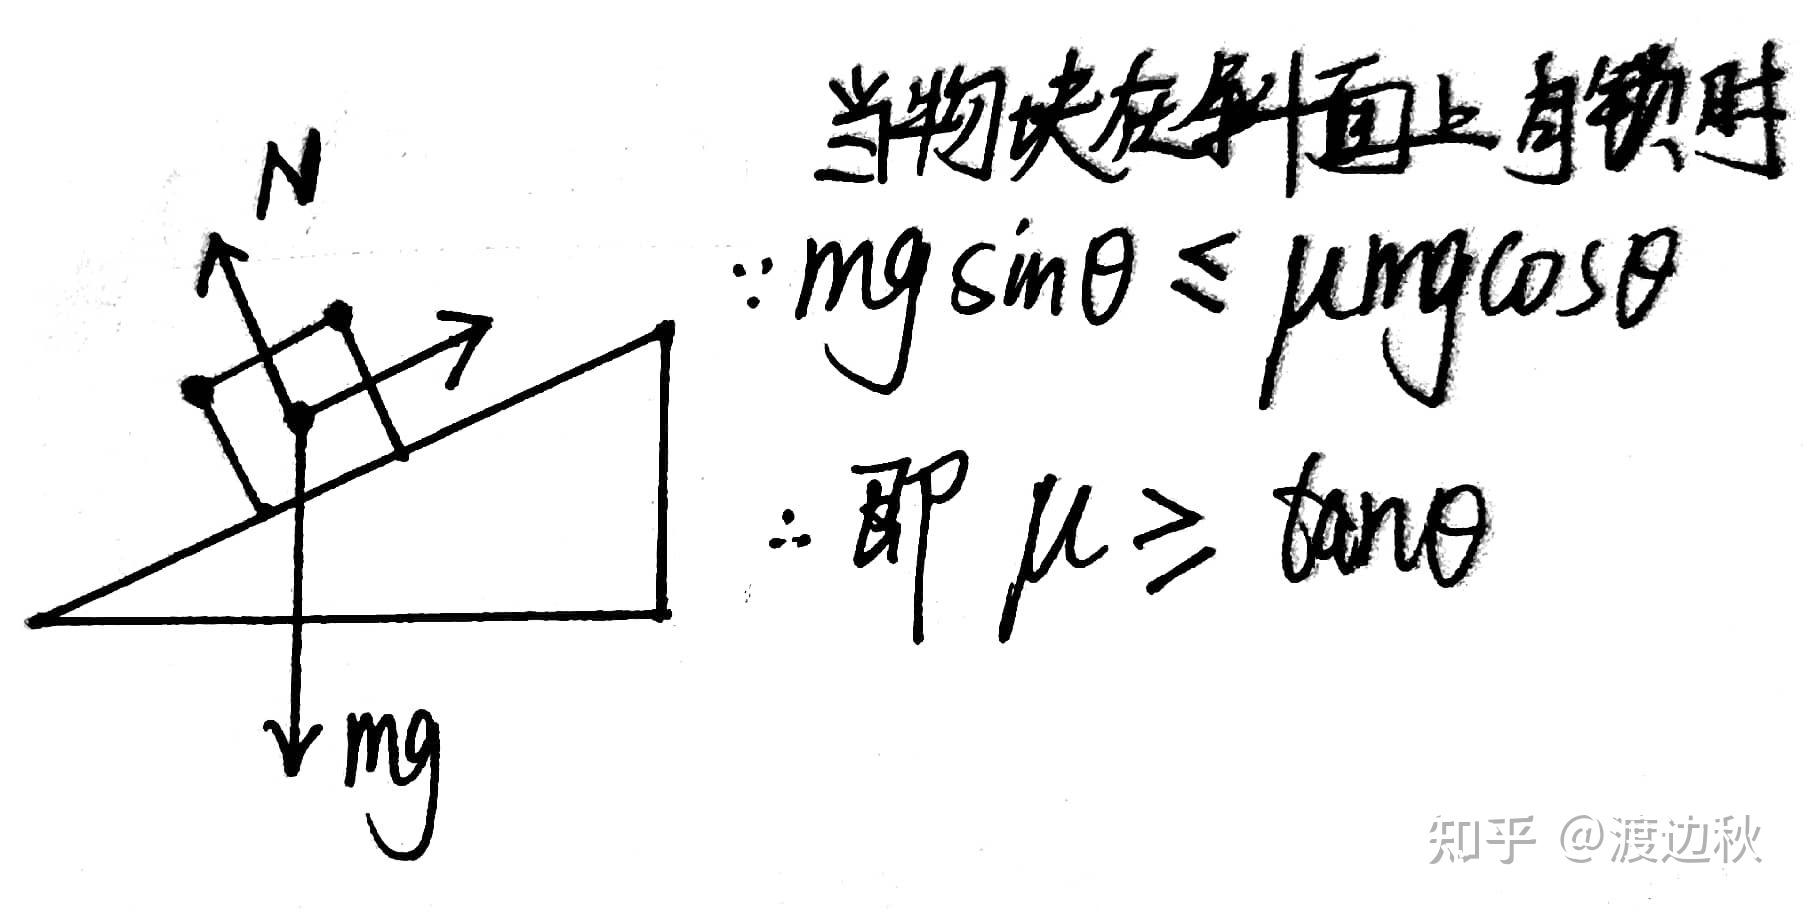 当物块在斜面上自锁时
∵mgsinθ≤μmgcosθ
∴即μ≥tanθ
N
mg
知乎 @渡边秋